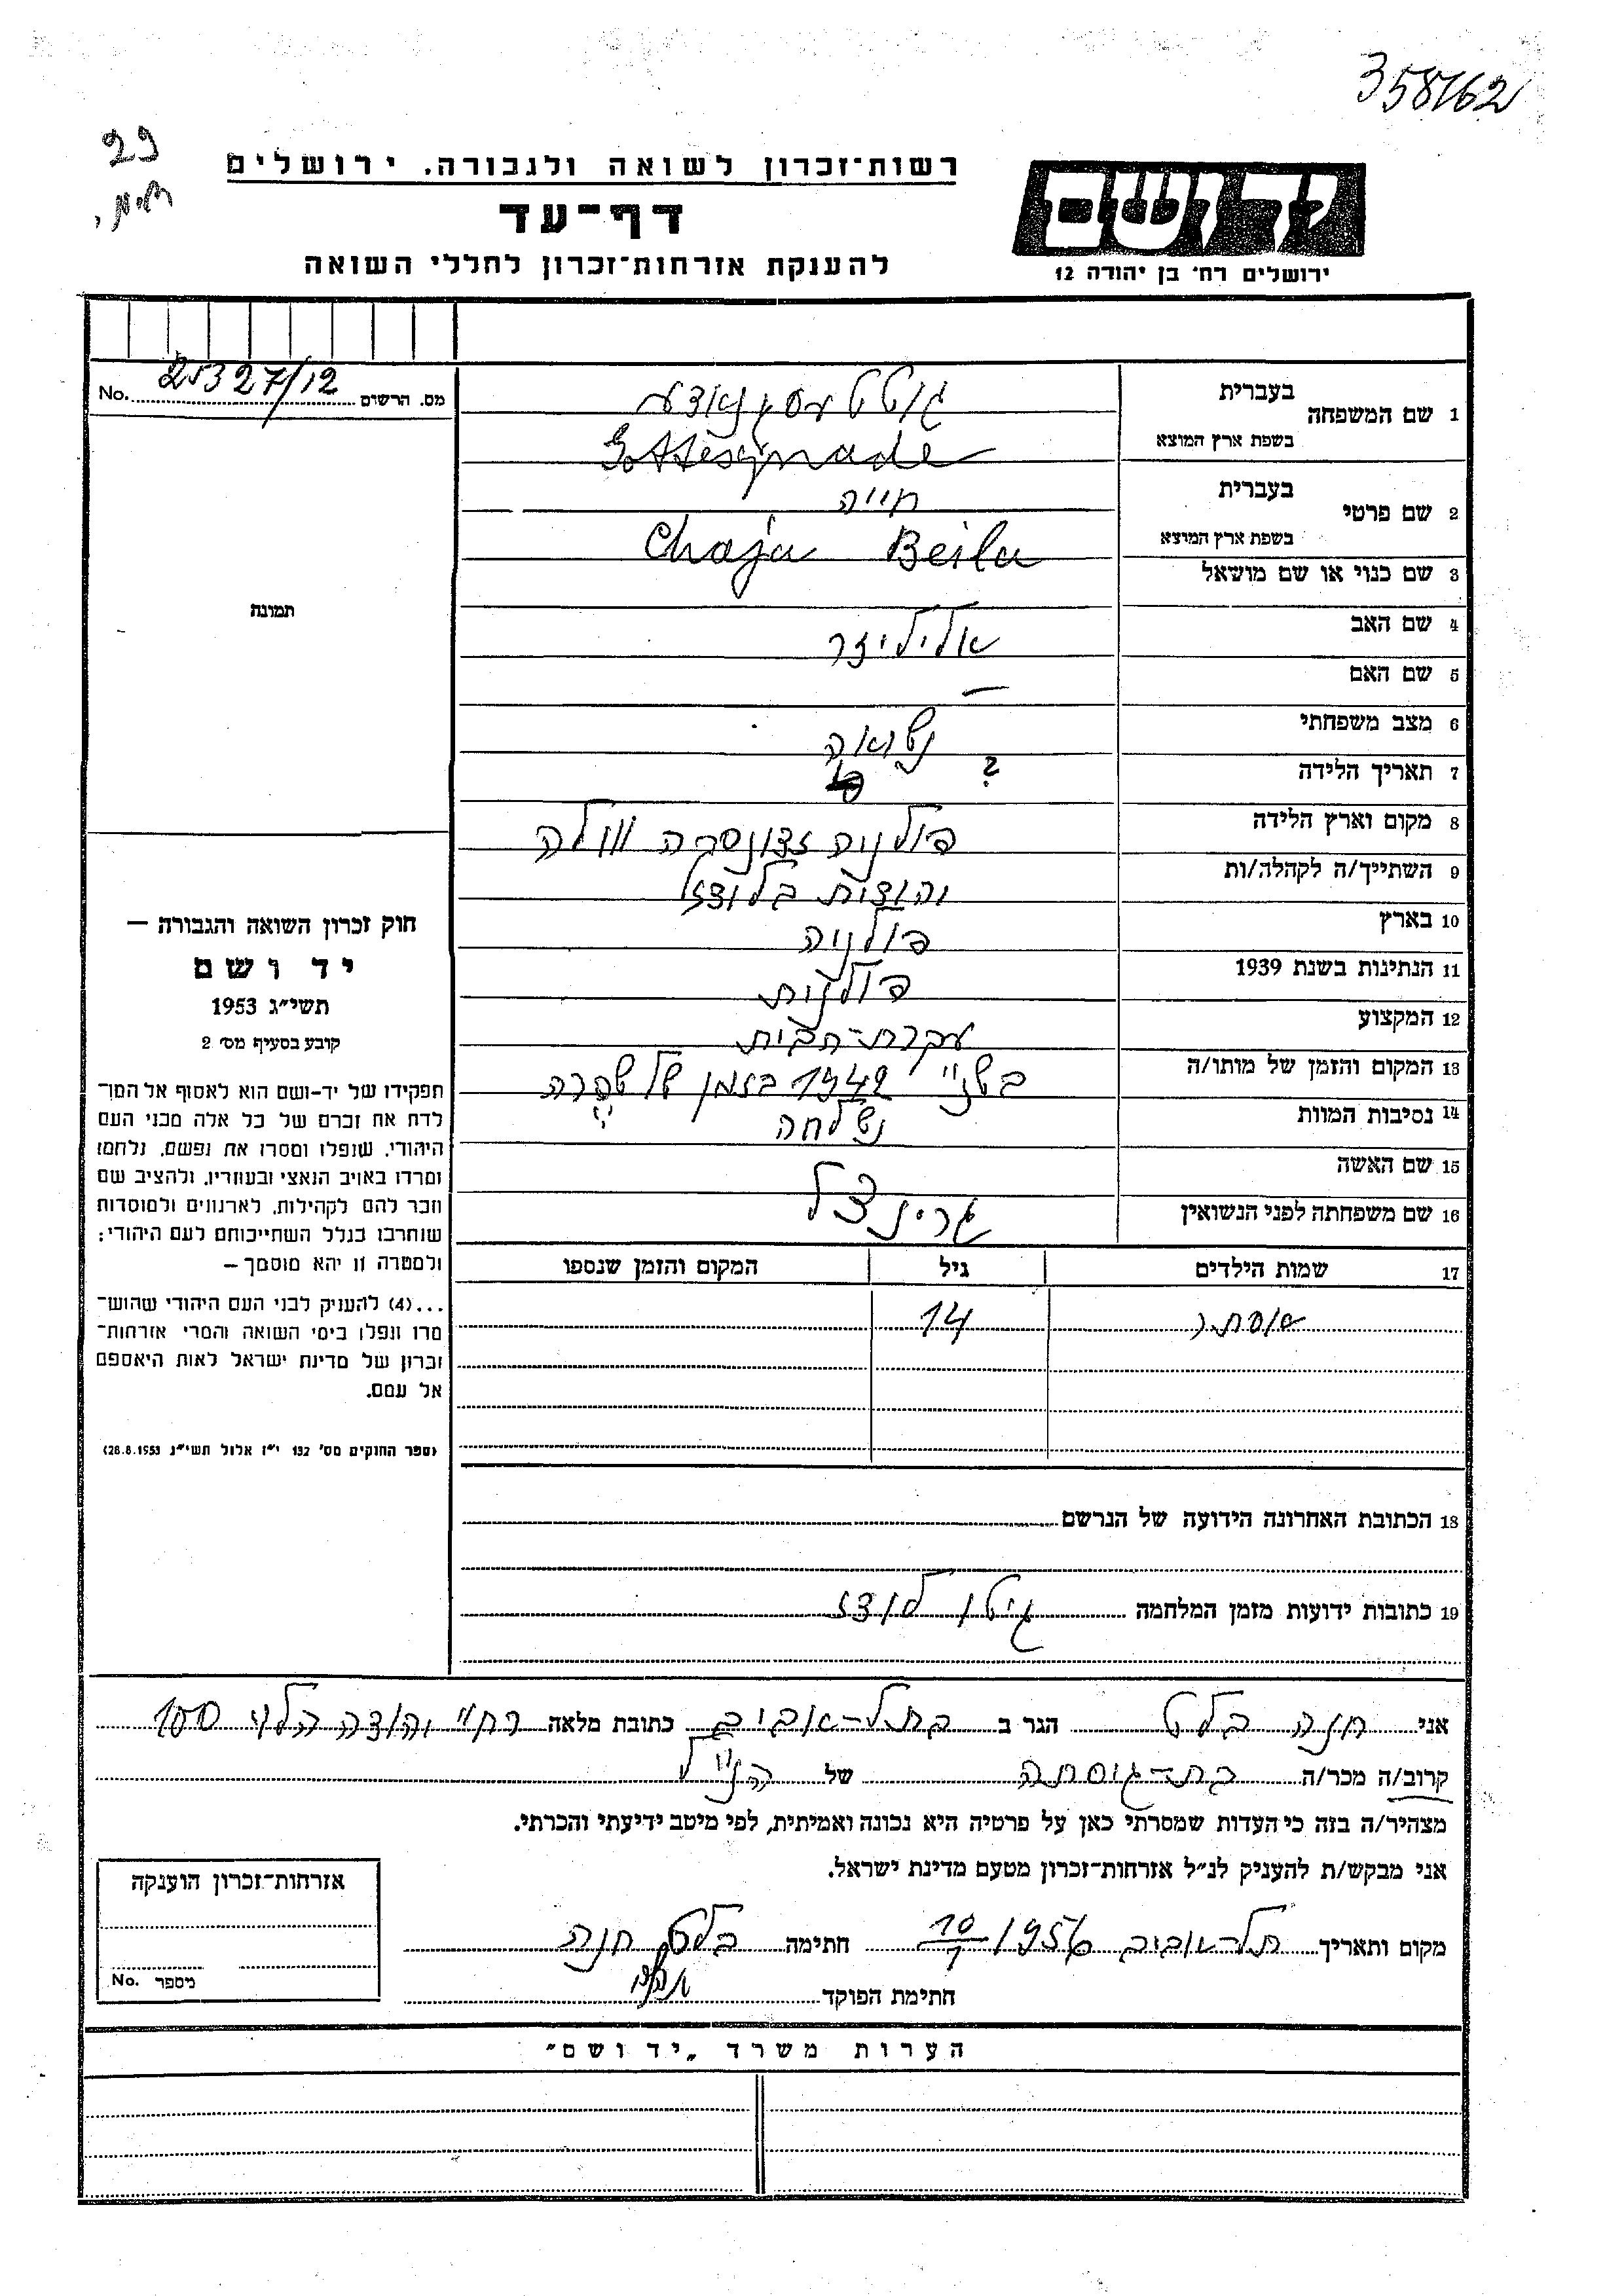 358162
29
רשות־זכרון לשואה ולגבורה. ירושלים
דף־עד
להענקת אזרחות־זכרון לחללי השואה
ידושם
ירושלים רח׳ בן יהודה 12
מס. הרשום 25327/12 No.
תמונה
1 שם המשפחה
בעברית גוטטעסגנאדע
בשפת ארץ המוצא Gottesgnade
2 שם פרטי
בעברית חייה
בשפת ארץ המוצא Chaja Beila
3 שם כנוי או שם מושאל
4 שם האב אליליזר
5 שם האם –
6 מצב משפחתי נשואה
7 תאריך הלידה ?
8 מקום וארץ הלידה פולניה זדונסקה וולה
9 השתייך/ה לקהלה/ות יהודית בלודז
10 בארץ פולניה
11 הנתינות בשנת 1939 פולנית
12 המקצוע עקרת-הבית
13 המקום והזמן של מותו/ה 1942 בזמן של שפרה
14 נסיבות המוות נשלחה
15 שם האשה
16 שם משפחתה לפני הנשואין
17 שמות הילדים גיל המקום והזמן שנספו
14
18 הכתובת האחרונה הידועה של הנרשם
19 כתובות ידועות מזמן המלחמה גיטו לודז
חוק זכרון השואה והגבורה —
יד ושם
תשי״ג 1953
קובע בסעיף מס׳ 2
תפקידו של יד-ושם הוא לאסוף אל המו־
לדת את זכרם של כל אלה מבני העם
היהודי, שנפלו ומסרו את נפשם, נלחמו
ומרדו באויב הנאצי ובעוזריו, ולהציב שם
וזכר להם לקהילות, לארגונים ולמוסדות
שנחרבו בגלל השתייכותם לעם היהודי;
ולמטרה זו יהא מוסמך —
...(4) להעניק לבני העם היהודי שהוש־
מדו ונפלו בימי השואה והמרי אזרחות־
זכרון של מדינת ישראל לאות היאספם
אל עמם.
(ספר החוקים מס׳ 132 י״ז אלול תשי״ג 28.8.1953)
אני חנה בלט הגר ב בתל-אביב כתובת מלאה רח׳׳ יהודה הלוי 100
קרוב/ה מכר/ה בת-גוסתה של הנ״ל
מצהיר/ה בזה כי העדות שמסרתי כאן על פרטיה היא נכונה ואמיתית, לפי מיטב ידיעתי והכרתי.
אני מבקש/ת להעניק לנ״ל אזרחות־זכרון מטעם מדינת ישראל.
מקום ותאריך תל-אביב 10/7 1956 חתימה בלט חנה
חתימת הפוקד
אזרחות־זכרון הוענקה
מספר No.
הערות משרד „יד ושם״